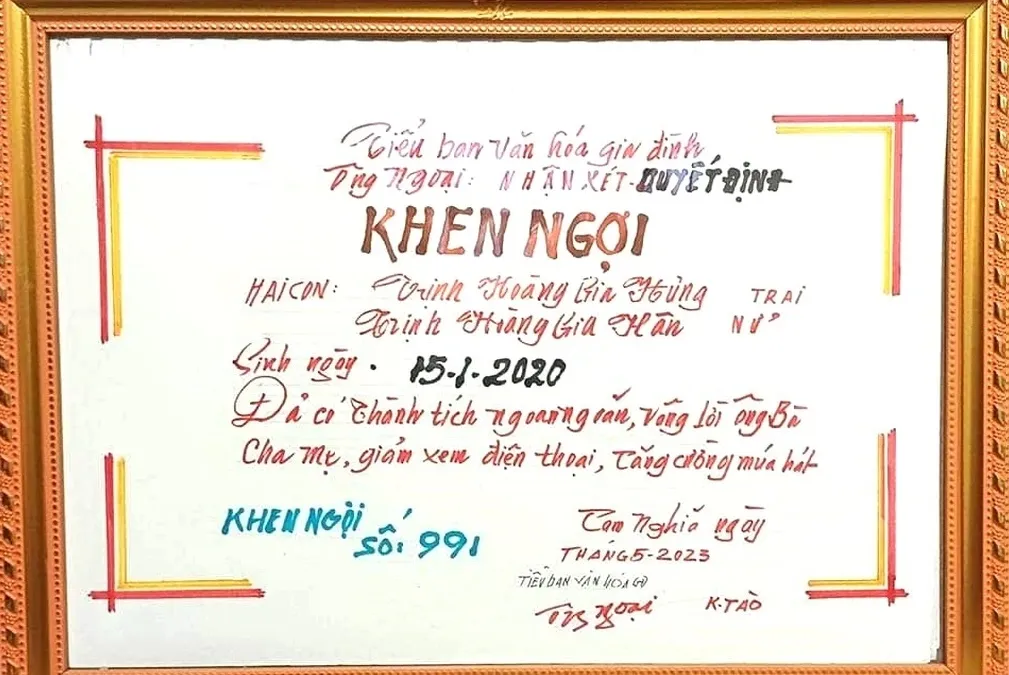 Tiểu ban Văn hóa gia đình
Ông Ngoại: NHẬN XÉT-QUYẾT ĐỊNH
KHEN NGỢI
HAI CON: Trịnh Hoàng Gia Hưng TRAI
Trịnh Hoàng Gia Hân NỮ
Sinh ngày. 15-1-2020
Đả có Thành tích ngoan ngoãn, vâng lời ông Bà
Cha Mẹ, giảm xem điện thoại, Tăng cường múa hát
KHEN NGỘI
SỐ: 991
Tam Nghĩa ngày
THÁNG 5-2023
TIỂU BAN VĂN HÓA GĐ
Ông ngoại K.TÀO